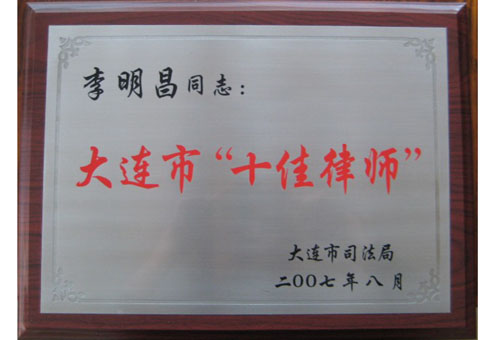 李明昌同志：
大连市“十佳律师”
大连市司法局
二00七年八月